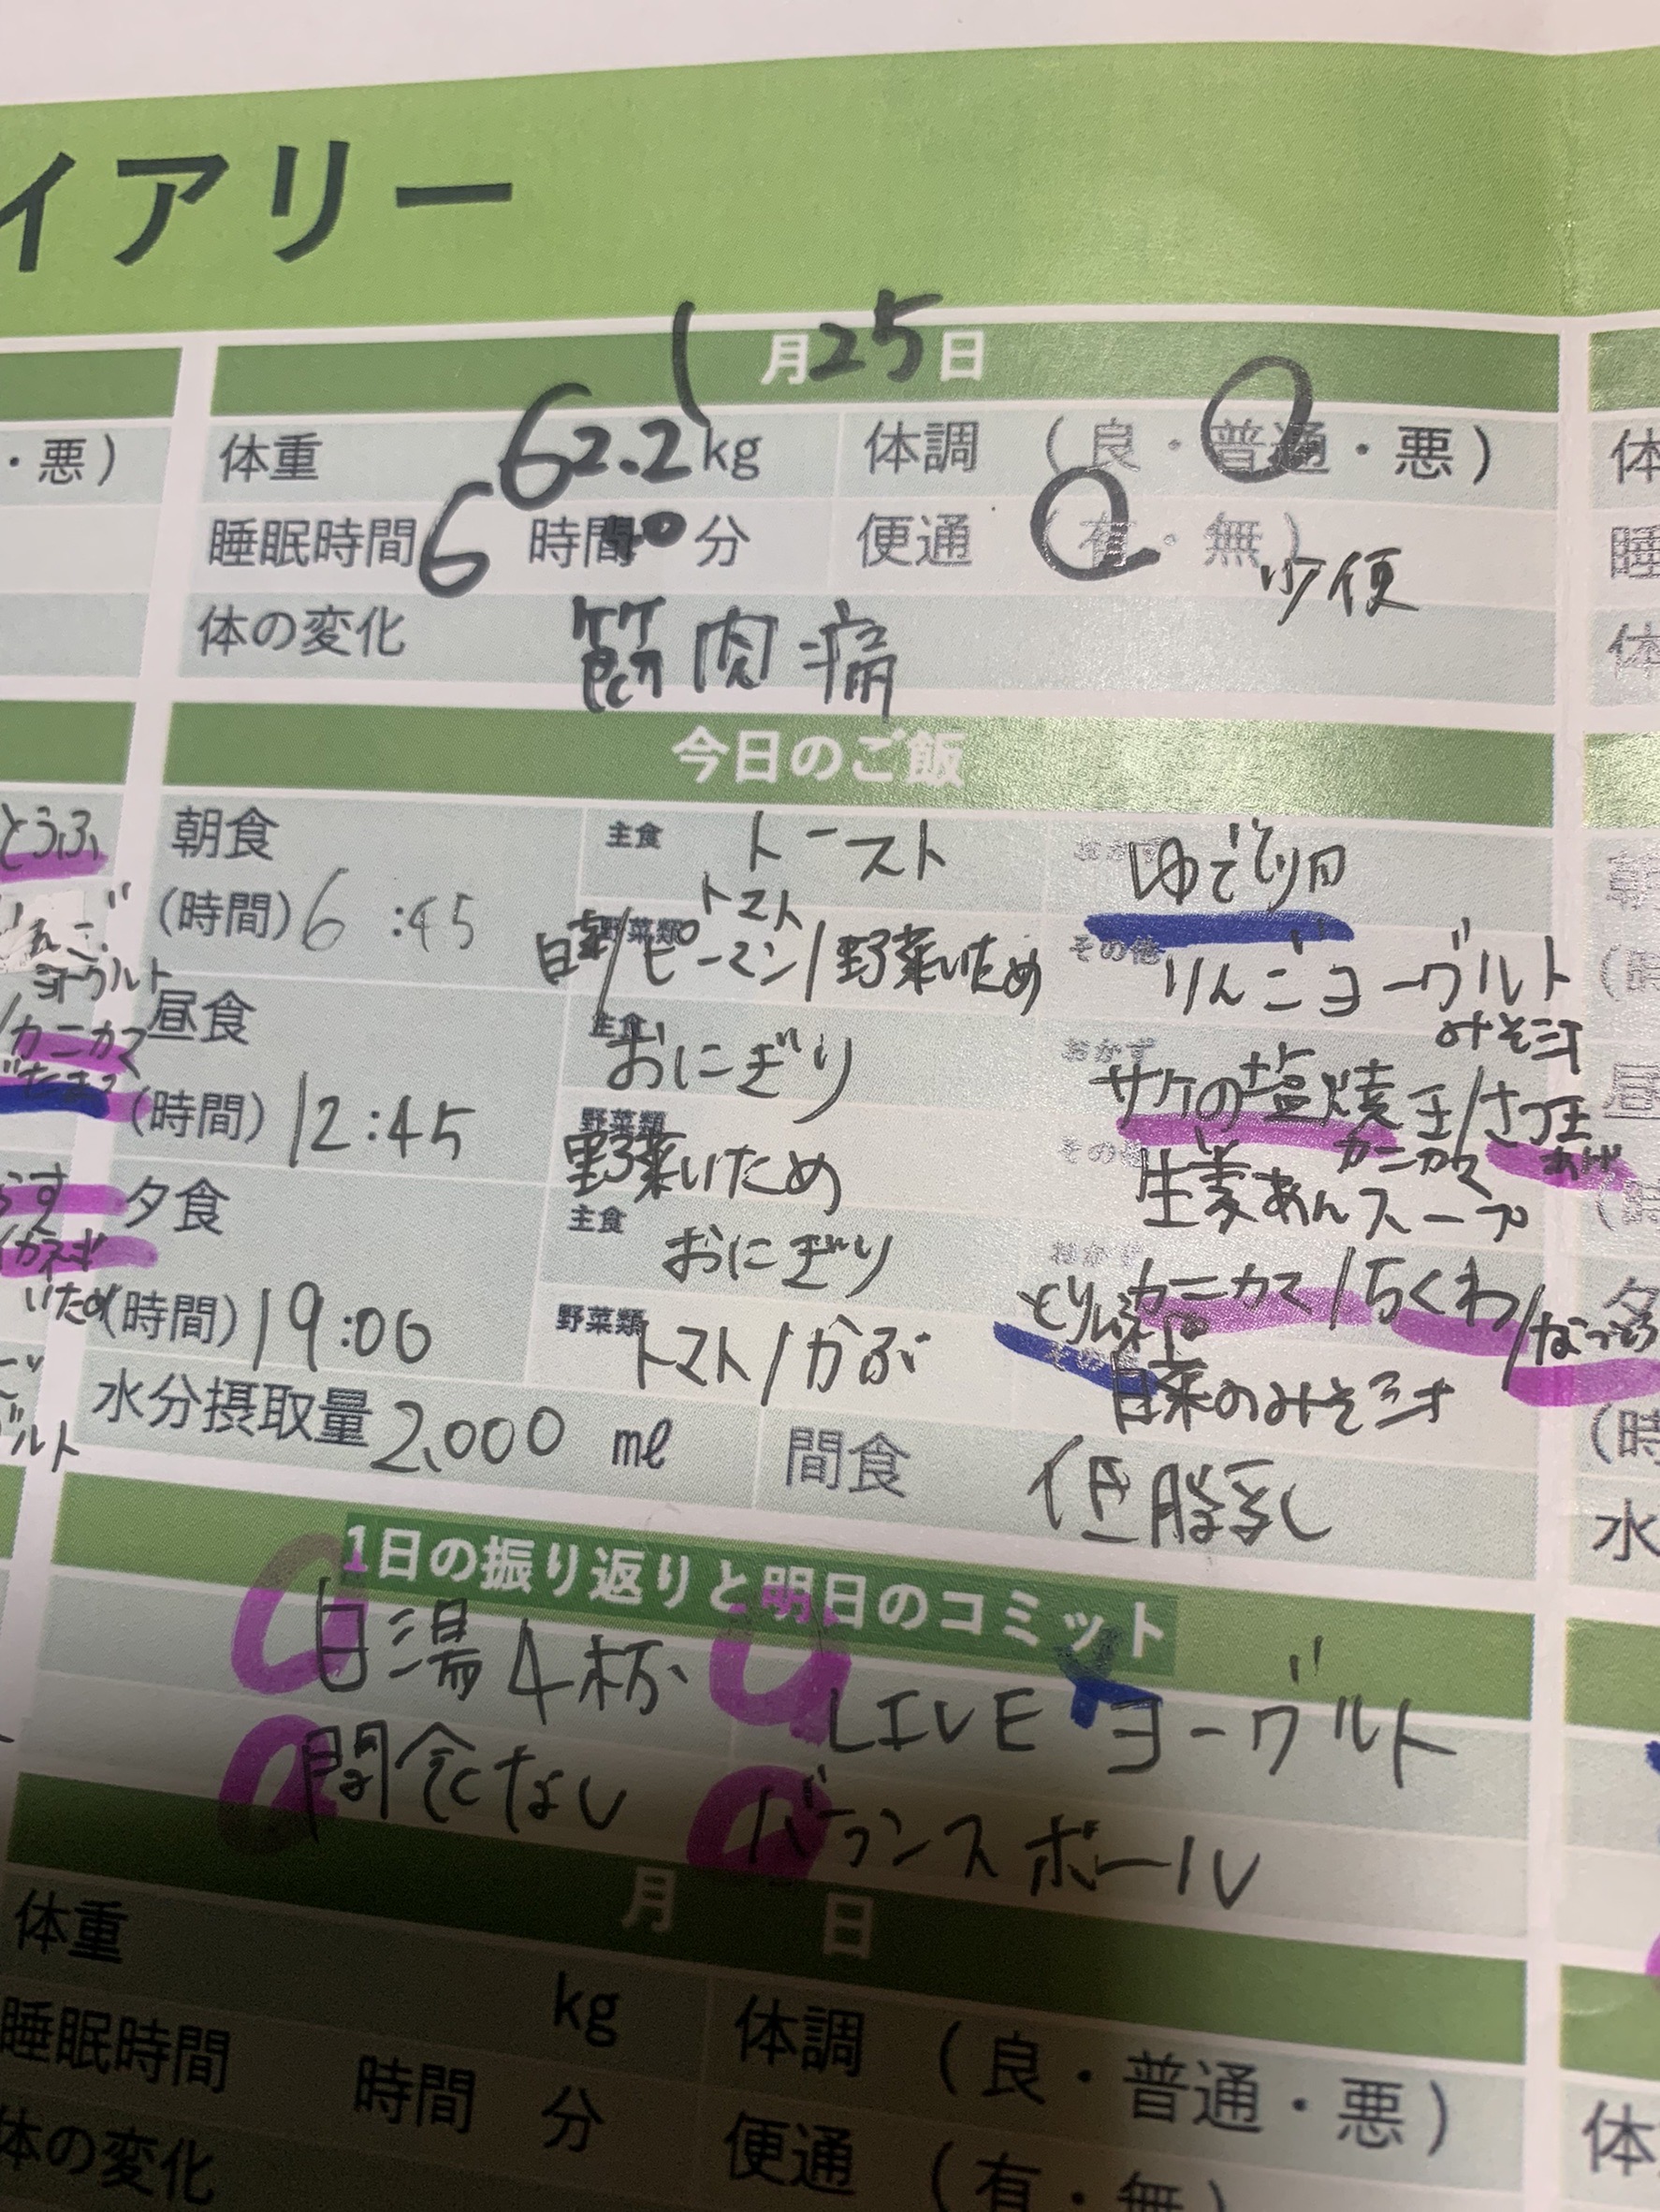 イアリー
1月25日
・悪)
体重 62.2kg 体調 (良・普通・悪)
睡眠時間 6 時間 0 分 便通 (有・無)
少便
体の変化 筋肉痛
今日のご飯
とうふ
朝食 主食 トースト おかず ゆで卵
(時間) 6:45 野菜類 トマト
白菜/ピーマン/野菜いため その他 りんごヨーグルト
みそ汁
ヨーグルト
カニカマ
昼食 主食 おにぎり おかず サケの塩焼
カニカマ
(時間) 12:45 野菜類 野菜いため その他 生姜あんスープ
夕食 主食 おにぎり おかず カニカマ/ちくわ/
いため
(時間) 19:00 野菜類 トマト/かぶ その他 白菜のみそ汁
水分摂取量 2,000 ml 間食 低脂乳
1日の振り返りと明日のコミット
白湯4杯 LIVE ヨーグルト
間食なし バランスボール
月 日
体重 kg 体調 (良・普通・悪)
睡眠時間 時間 分 便通 (有・無)
体の変化